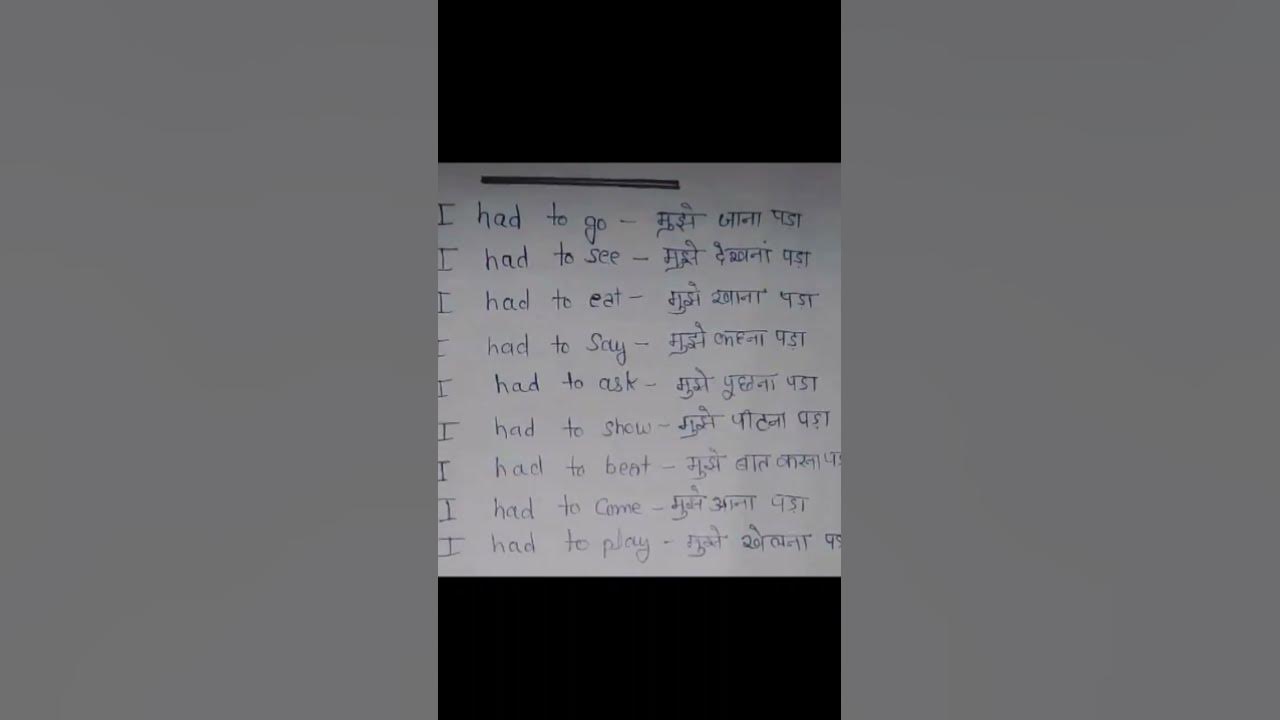 I had to go - मुझे जाना पडा
I had to see - मुझे देखनां पड़ा
I had to eat - मुझे खाना पडा
I had to say - मुझे कहना पड़ा
I had to ask - मुझे पूछना पडा
I had to show - मुझे पीटना पड़ा
I had to beat - मुझे बात करना
I had to Come - मुझे आना पड़ा
I had to play - मुझे खेलना